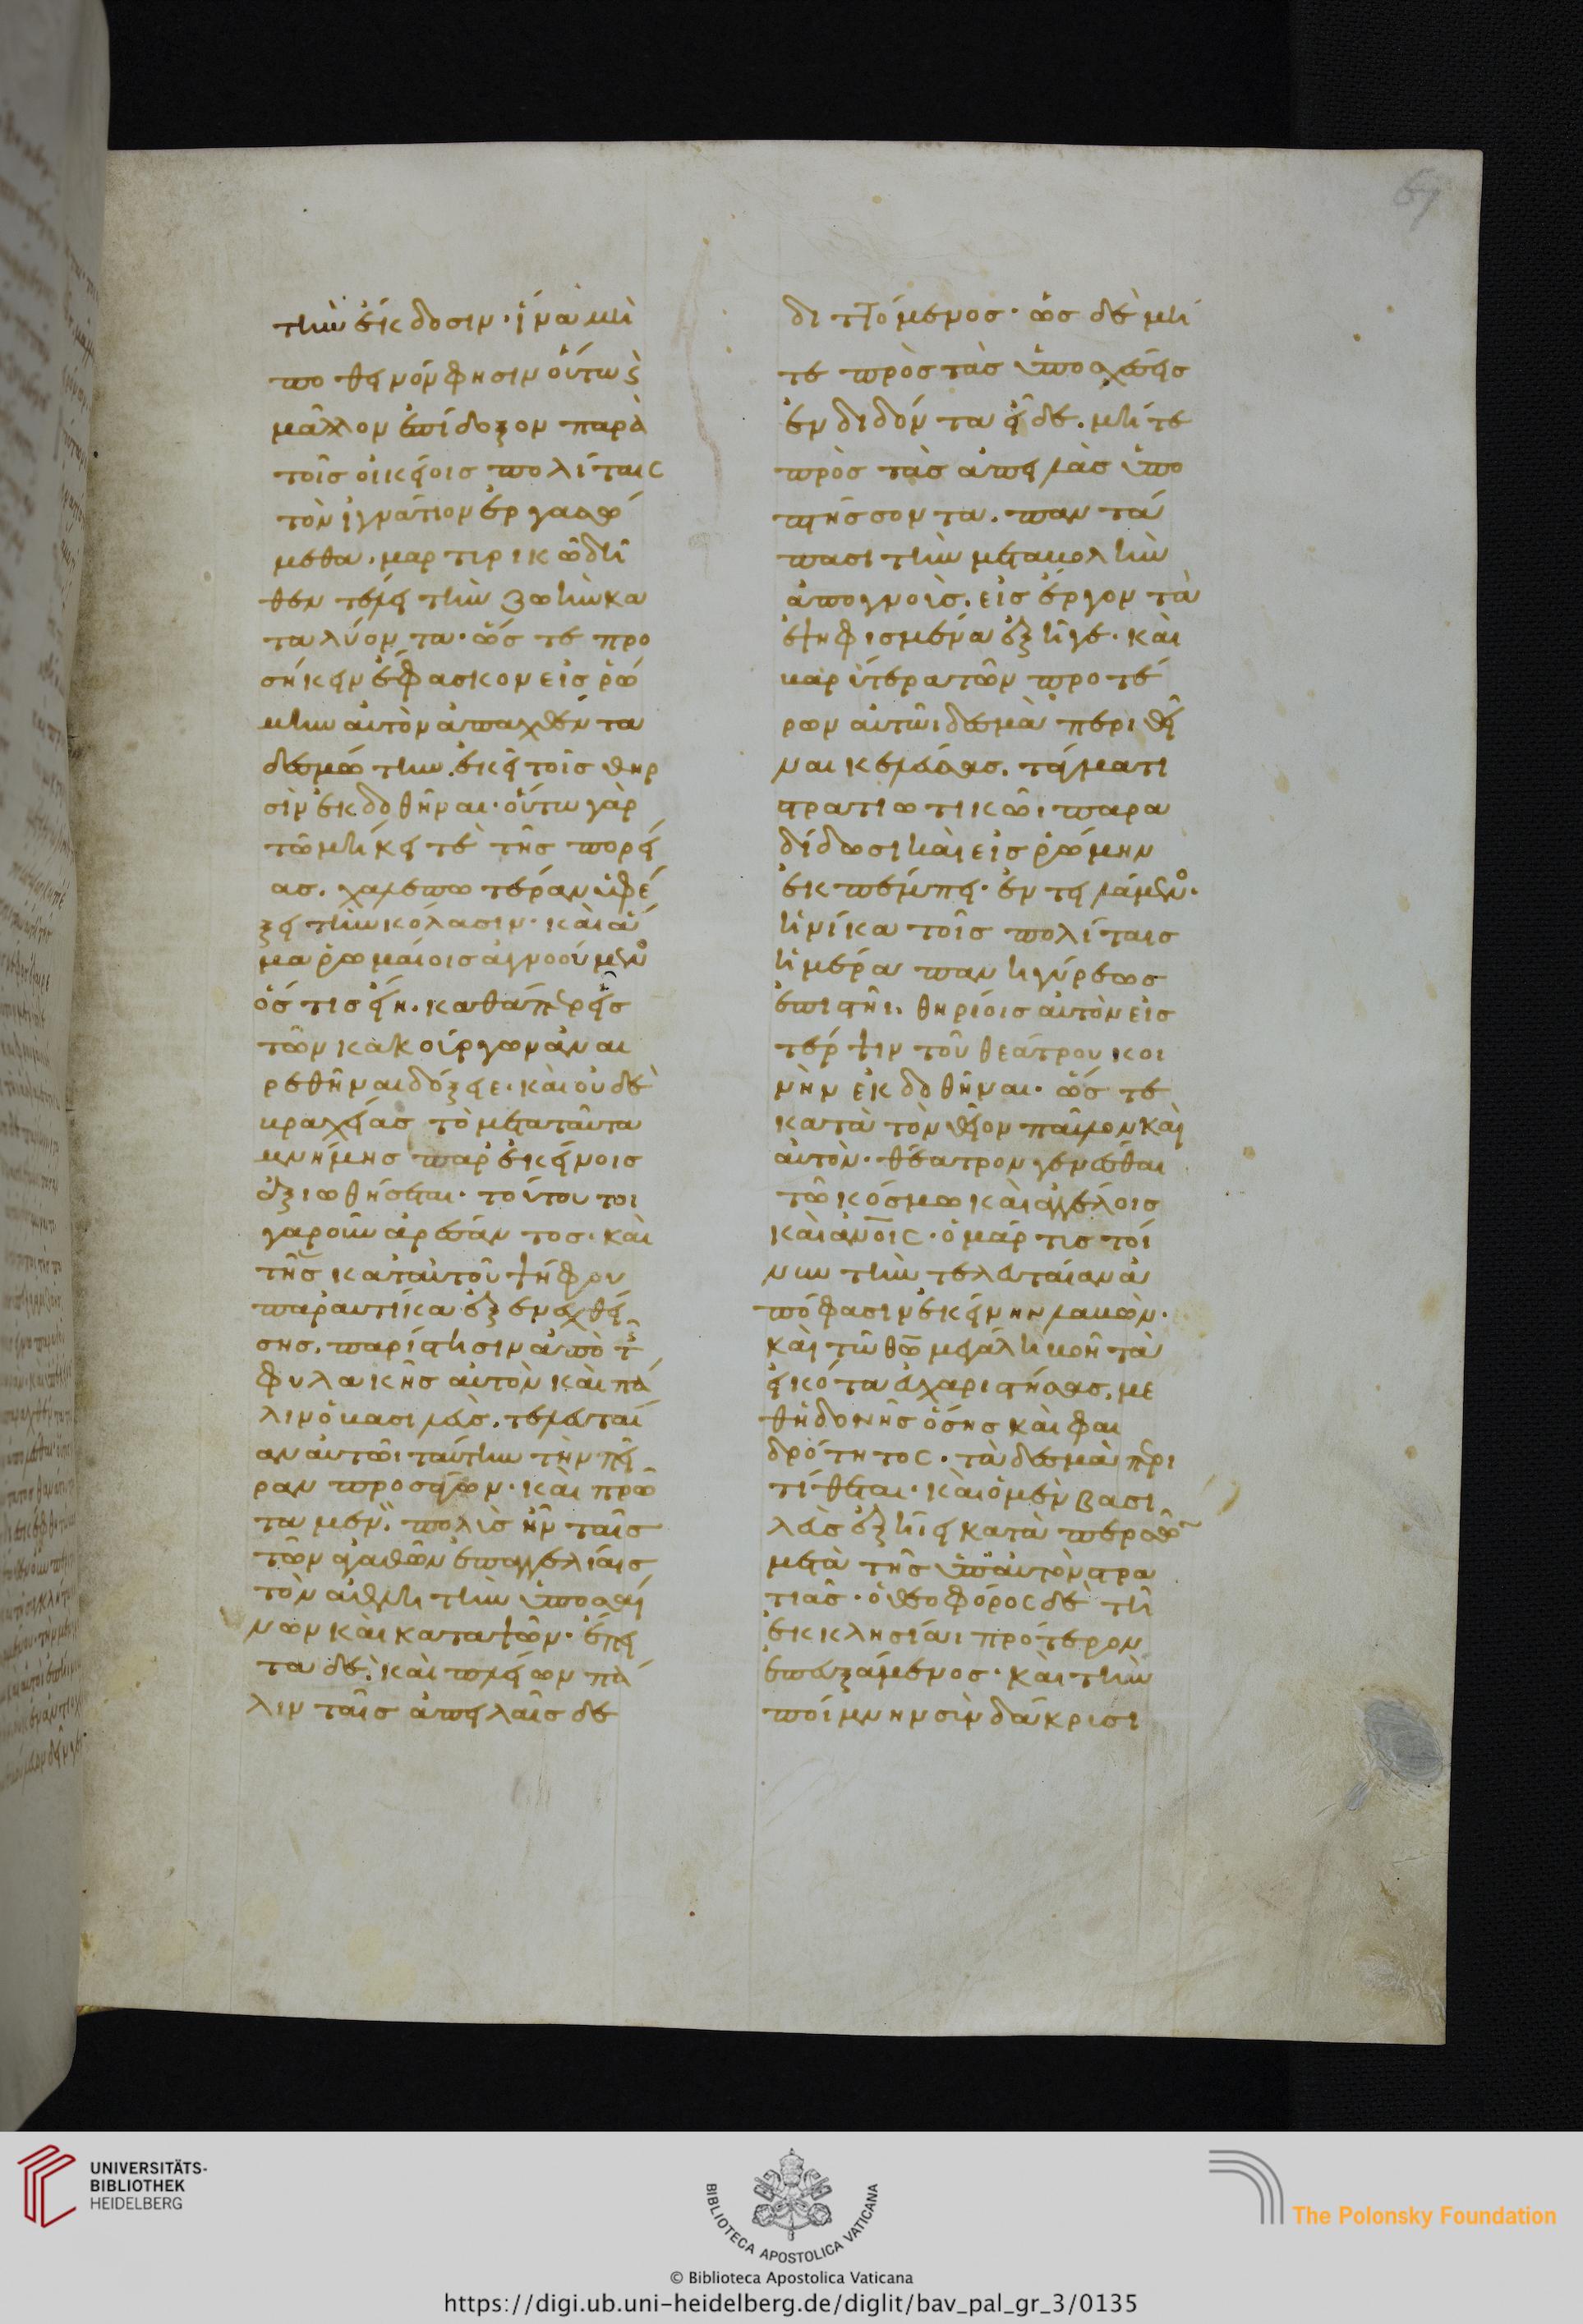 τὴν ἔκδοσιν· ἵνα μὴ
ποθεινόν φησιν οὕτως
μᾶλλον ἐπίδοξον παρὰ
τοῖς οἰκείοις πολίταις
τὸν ἰγνάτιον ἐργασώ
μεθα. μαρτυρικῶ δῆ
θεν τέλει τὴν ζωὴν κα
ταλύοντα· ὥστε προ
σήκειν ἔφασκον εἰς ῥώ
μην αὐτὸν ἀπαχθέντα
δεσμώτην. ἐκεῖ τοῖς θηρ
σὶν ἐκδοθῆναι· οὕτω γὰρ
τῶ μήκει τὲ τῆς πορεί
ας. χαλεπωτέραν ὑφέ
ξει τὴν κόλασιν· καὶ ἅ
μα ῥωμαίοις ἀγνοούμεν
ὅστις εἴη. καθάπερ εἷς
τῶν κακούργων ἀναι
ρεθῆναι δόξειε. καὶ οὐδὲ
βραχείας τὸ μετὰ ταῦτα
μνήμης παρ ἐκείνοις
ἀξιωθήσεται. τούτου τοι
γαροῦν ἀρέσαντος. καὶ
τῆς κατ αὐτοῦ ψήφου
παραυτίκα ἐξενεχθεί
σης. παρίστησιν ἀπὸ τ
φυλακῆς αὐτὸν καὶ πά
λιν ὁ βασιλεύς. τελευταί
αν αὐτῶι ταύτην τὴν πεῖ
ραν προσάγων· καὶ πρῶ
τα μὲν. πολὺς ἦν ταῖς
τῶν ἀγαθῶν ἐπαγγελίαις
τὸν ἀθλητὴν ὑποσαί
νων καὶ καταψῶν· ἔπει
τα δὲ. καὶ πλείων πά
λιν ταῖς ἀπειλαῖς δε
διττόμενος· ὡς δὲ μή
τε πρὸς τὰς ὑποσχέσεις
ἐνδιδόντα εἶδε. μήτε
πρὸς τὰς ἀπειλὰς ὑπο
πτήσσοντα. παντά
πασι τὴν μεταβολὴν
ἀπογνοὺς. εἰς ἔργον τὰ
ἐψηφισμένα ἐξῆγε. καὶ
βαρύτερα τῶν προτέ
ρων αὐτῶι δεσμὰ περιθεῖ
ναι κελεύσας. τάγματι
στρατιωτικῶι παρα
δίδωσι καὶ εἰς ῥώμην
ἐκπέμπει. ἐντειλάμεν.
ἡνίκα τοῖς πολίταις
ἡμέρα πανηγύρεως
ἐπιστῆι. θηρίοις αὐτὸν εἰς
τέρψιν τοῦ θεάτρου κοι
νὴν ἐκδοθῆναι. ὥστε
κατὰ τὸν θεῖον παῦλον καὶ
αὐτὸν. θέατρον γενέσθαι
τῶ κόσμω καὶ ἀγγέλοις
καὶ ἀνοις. ὁ μάρτυς τοί
νυν τὴν τελευταίαν ἀ
πόφασιν ἐκείνην λαβὼν.
καὶ τῶ θῶ μεγάλη βοῆ τὰ
εἰκότα εὐχαριστήσας. με
θ ἡδονῆς ὅσης καὶ φαι
δρότητος. τὰ δεσμὰ περι
τίθεται. καὶ ὁ μὲν βασι
λεὺς ἐξήει κατὰ περσῶν
μετὰ τῆς ὑπ αὐτὸν στρα
τιᾶς. ὁ θεοφόρος δὲ τῆ
ἐκκλησίαι πρότερον
ἐπευξάμενος. καὶ τὴν
ποίμνην σὺν δάκρυσι
UNIVERSITÄTS-
BIBLIOTHEK
HEIDELBERG
BIBLIOTECA APOSTOLICA VATICANA
The Polonsky Foundation
© Biblioteca Apostolica Vaticana
https://digi.ub.uni-heidelberg.de/diglit/bav_pal_gr_3/0135